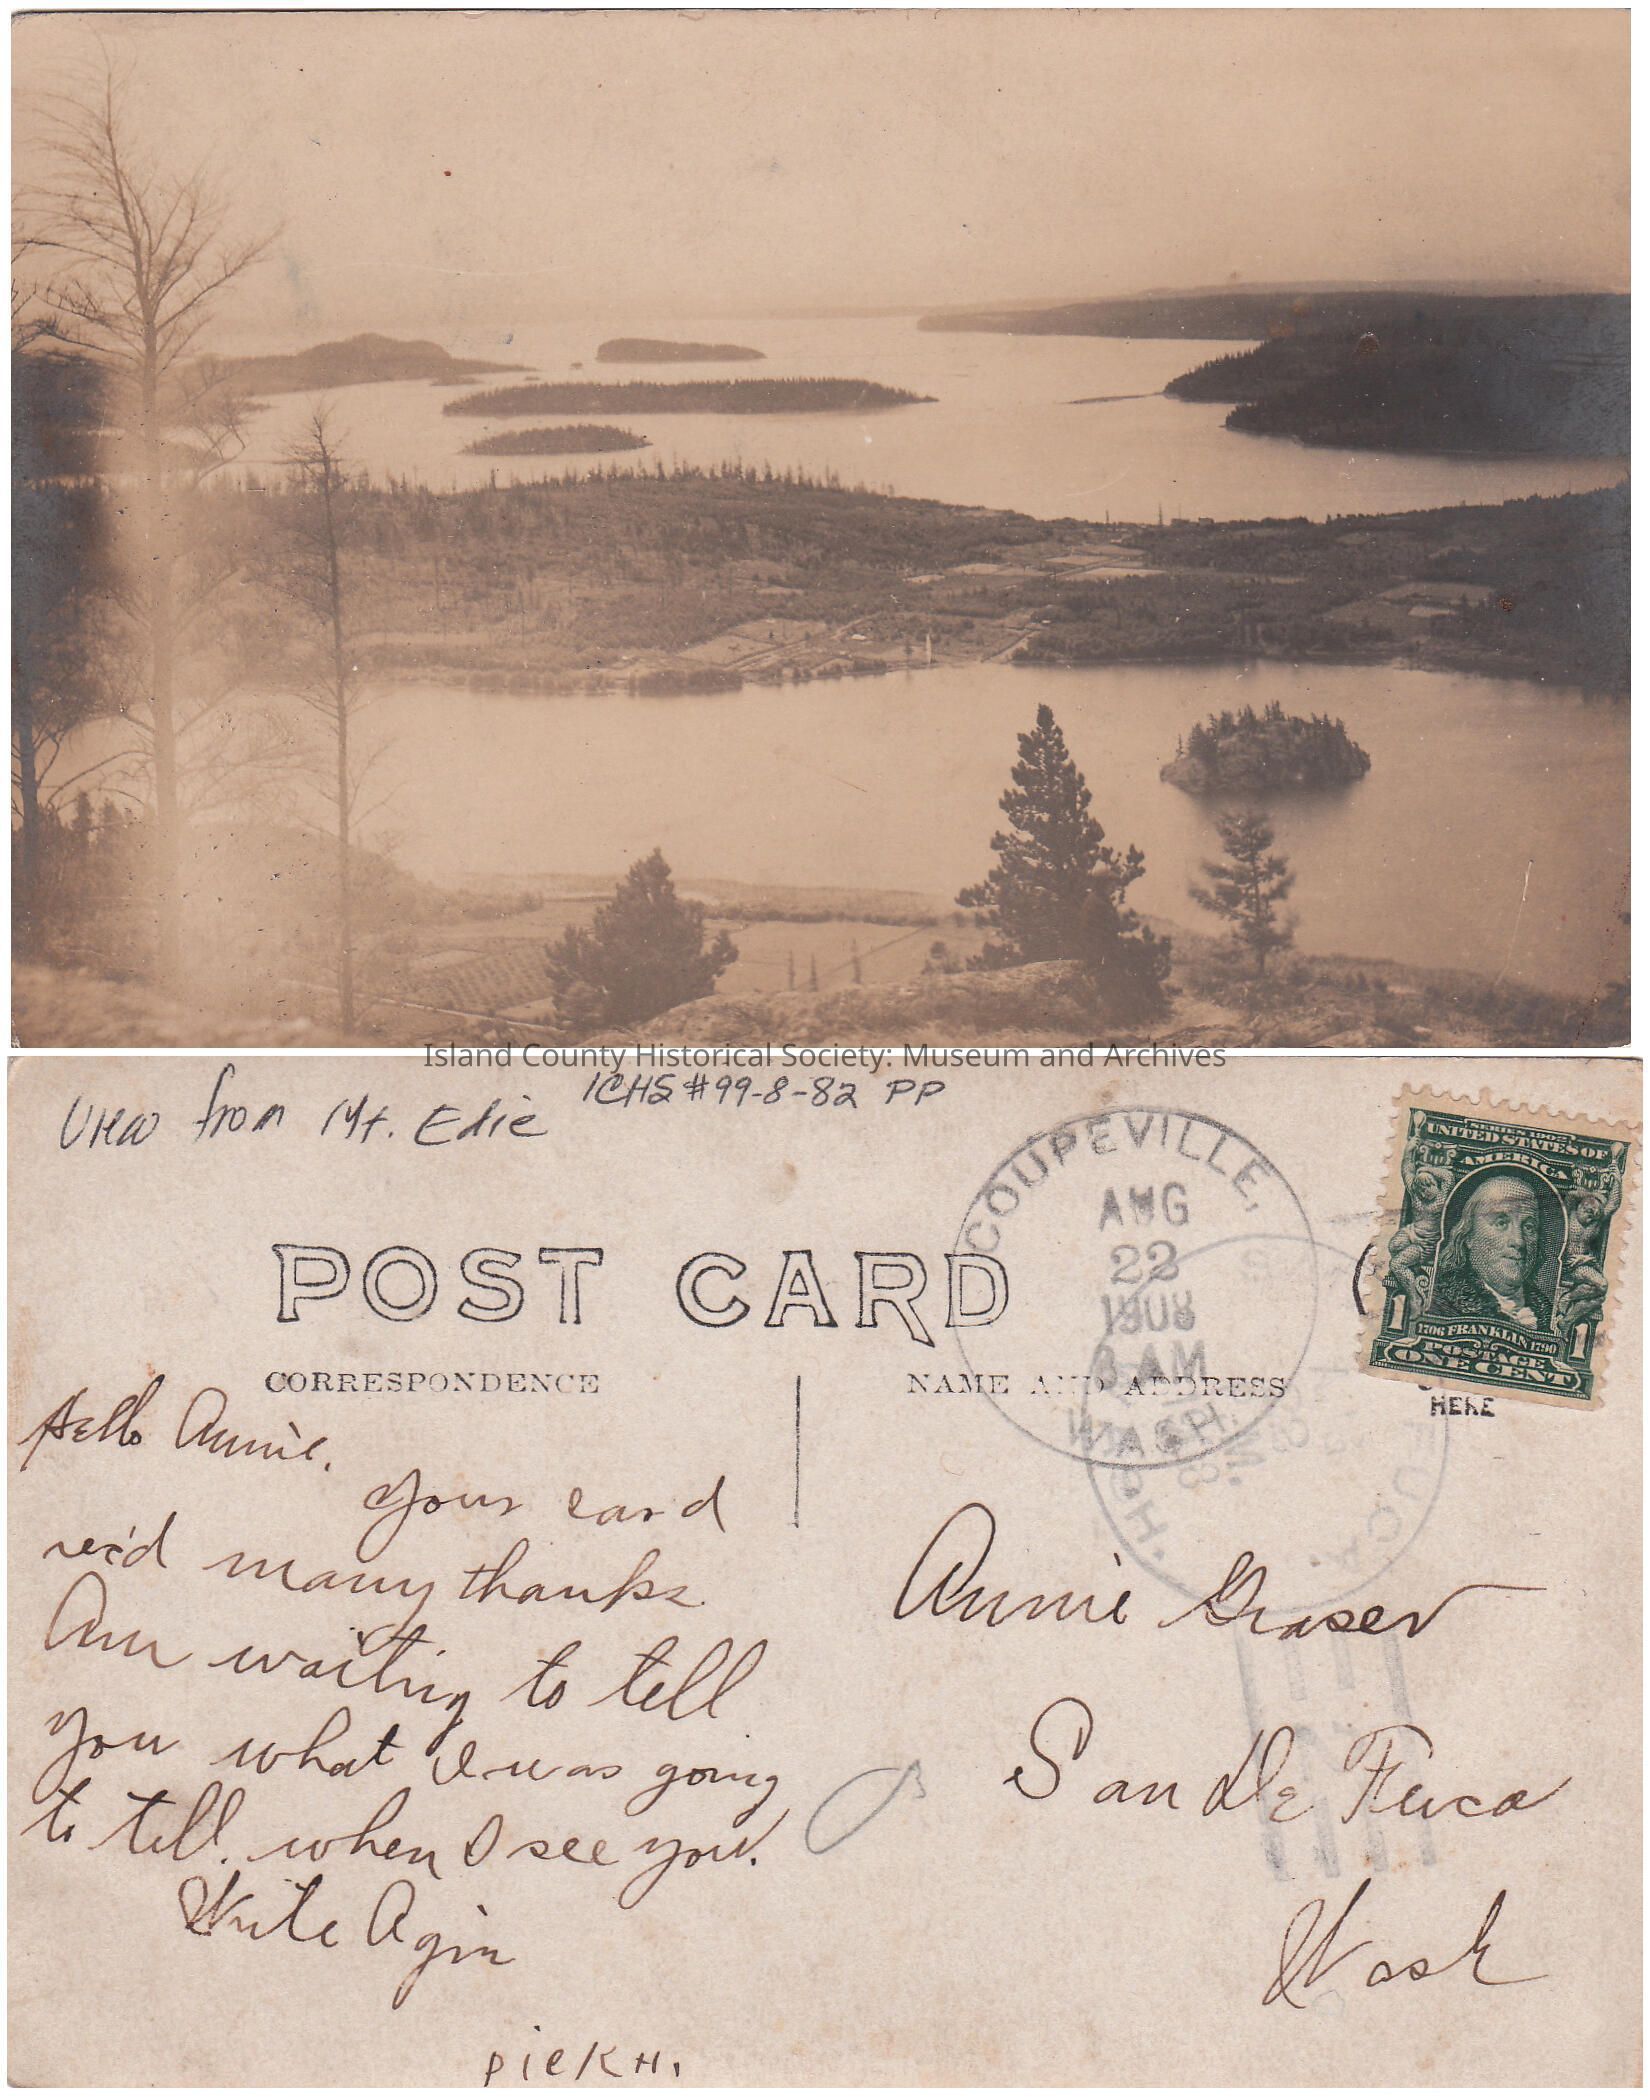 Island County Historical Society: Museum and Archives
View from Mt. Edie
ICHS #99-8-82 PP
COUPEVILLE,
AUG
22
1908
8 AM
WASH.
SERIES 1902
UNITED STATES OF
AMERICA
1706 FRANKLIN 1790
POSTAGE
1 1
ONE CENT
HERE
POST CARD
CORRESPONDENCE
NAME AND ADDRESS
Hello Annie.
Your card
rec'd many thanks
Am waiting to tell
you what I was going
to tell. when I see you.
Write Agin
PICKH.
Annie Graser
San De Fuca
Wash